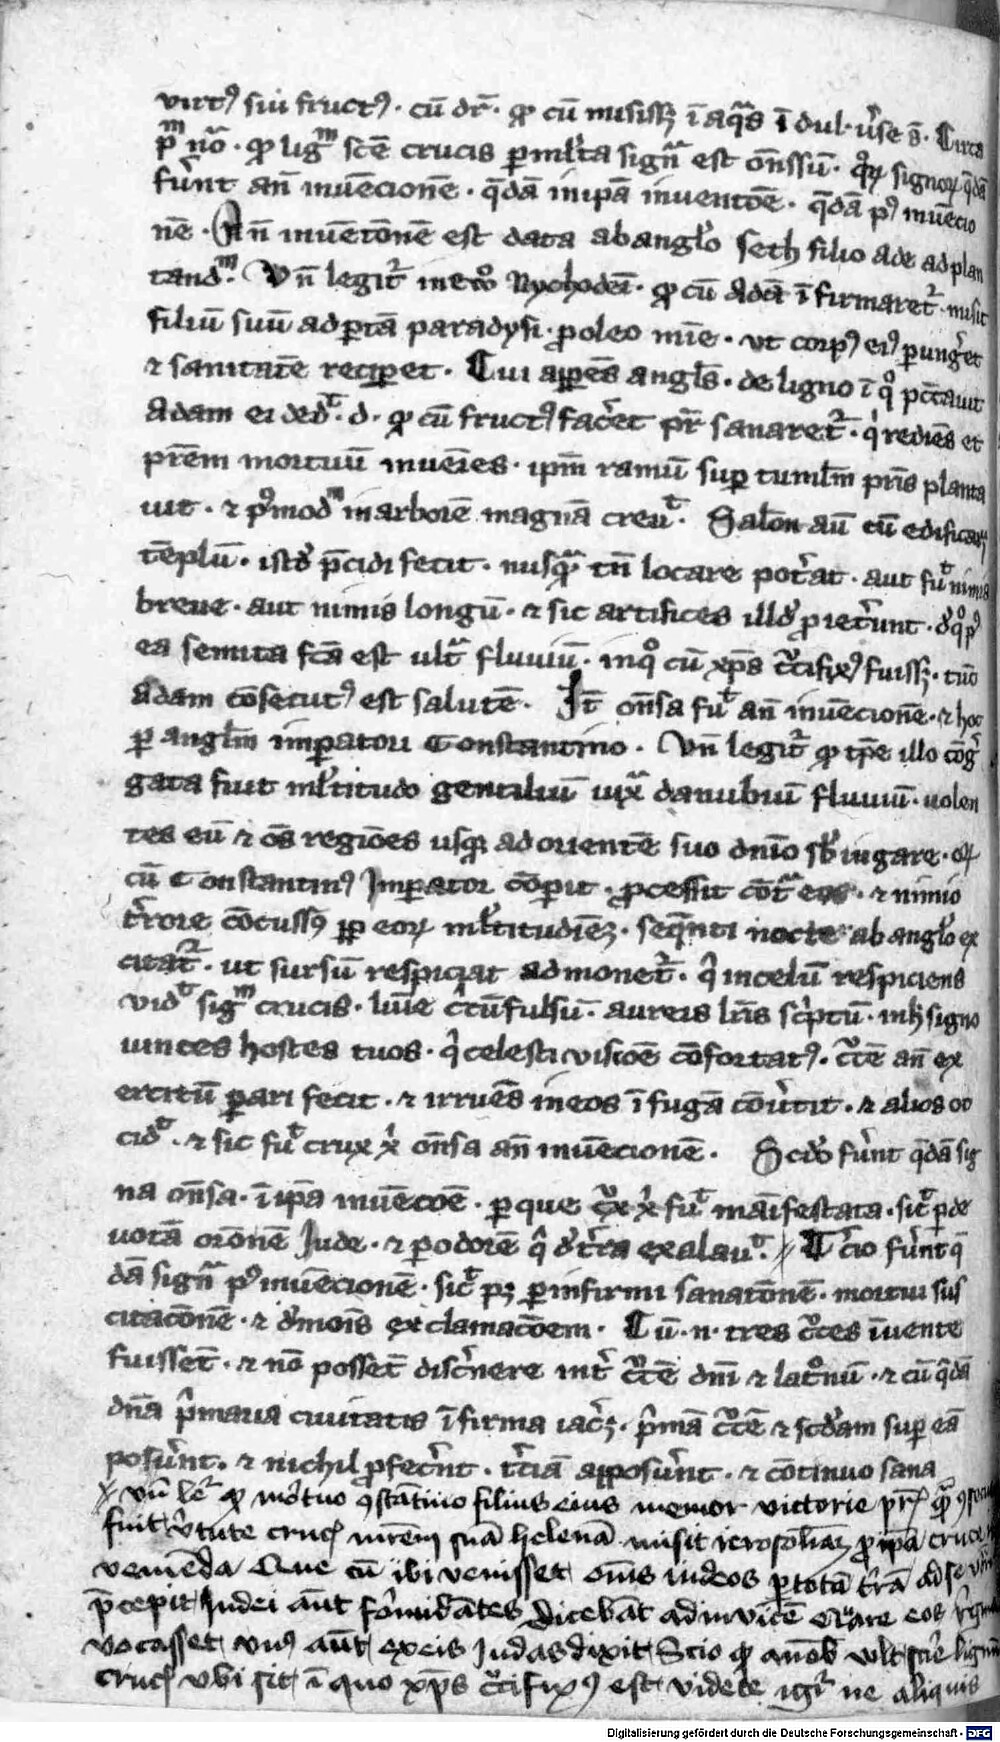 virtꝰ siui fructꝰ · cū dr̄ · ꝙ cū misissꝫ ī aq̄s ī dul · v̓se s̄ · Circa
pᵐ nō · ꝙ ligᵐ sc̄e crucis ꝑ ml̓ta signᵃ est on̄ssū · qͦꝝ signoꝝ q̄dā
fuer̄nt an̄ inuēcionē · q̄dā in ipā inuentōe · q̄dā pꝰ inuēcio
nē · An̄ inuētōnē est data ab angl̓o seth filio ade ad plan
tandᵐ · Vn̄ legit᷑ in Nychodei · ꝙ cū Adā īfirmaret᷑ · misit
filiū suū ad portā paradysi · ꝓ oleo mīe · vt corpꝰ eiꝰ ꝑungēt
⁊ sanitatē reciperet · Cui apparēs angl̓s · de ligno ī qͦ peccauit
Adam ei dedᵗ · d · ꝙ cū fructꝰ facēt pr̄ sanaret᷑ · qͥ rediēs et
pr̄em mortuū inueīes · ipm̄ ramū suꝑ tuml̄m pr̄is planta
uit · ⁊ pꝰmodᵐ in arborē magnā creuᵗ · Salon̄ aū cū edificaret
tēplū · istd̓ p̄cidi fecit · nusqᵃ tn̄ locare pot̓at · aut fuᵗ nimis
breue · aut nimis longū · ⁊ sic artifices illd̓ ꝓiec̓unt
ea semita fc̄a est ultᵃ fluuiū · in qͦ cū xp̄s cͬcifixꝰ fuissꝫ · tūc
Adam cōsecutꝰ est salutē · It̄ on̄sa fuᵗ an̄ inuēcionē · ⁊ hoc
ꝑ angl̄m imꝑatori Constantino · Vn̄ legit᷑ ꝙ tp̄e illo cōg̓
gata fuit ml̓titudo gentiliū iuxᵃ danubiū fluuiū · uolen
tes eū ⁊ oēs regiōes usqꝫ ad orientē suo dnīo sb̓iugare · qͦꝝ
cū Constantinꝰ Imꝑator cōꝑit · ꝓcessit cōtᵃ eos · ⁊ nimio
t̓rore cōcussꝰ ꝓp eoꝝ ml̓titudīeꝫ · seqn̄ti nocte ab angl̓o ex
citat᷑ · ut sursū respiciat admonet᷑ · qͥ in celū respiciens
vidᵗ sigᵐ crucis · lumīe cͥcūfulsū · aureis lr̄is scͥptū · in h̄ signo
uinces hostes tuos · qͥ celesti visiōe cōfortatꝰ · cͬcē an̄ ex
ercitū ꝑari fecit · ⁊ irruēs in eos ī fugā cōu̓tit · ⁊ alios oc
cidᵗ · ⁊ sic fuᵗ crux xͥ on̄sa an̄ inuēcionē · Scd̓o fuer̄nt q̄dā sig
na on̄sa · ī ipā inuēcōe · ꝑ que cͬx xͥ fuᵗ māifestata · sicᵗ ꝑ de
uotā orōnē Jude · ⁊ ꝑ odorē qͥ d̓ t̓ra exalauᵗ · T̓cio fuer̄nt q̄
dā signᵃ pꝰ inuēcionē · sicᵗ pꝫ ꝑ infirmi sanatōnē · mortui sus
citacōnē · ⁊ d̓mōis exclamacōem · Cū · n · tres cͬces īuente
fuissēt · ⁊ nō possēt disc̓nere int̓ cͬcē dnī ⁊ latͦnū · ⁊ cū q̄dā
dn̄a pͥmaria ciuitatis īfirma iac̓ꝫ · pͥmā cͬcē ⁊ scd̓am suꝑ eā
posuer̄nt · ⁊ nichil ꝓfecer̄nt · t̓ciā apposuer̄nt · ⁊ cōtinuo sana
vn̄ leᵗ ꝙ mortuo ꝯstātino filius eius memor victorie pr̄is
fuit v̓tute crucis mr̄em suā helenā misit ierosolimā ꝓ ipā cruce
venīenda Que cū ibi venisset om̄s iudeos ꝑ totā t̓rā ad se
p̄cepit Judei aūt formidātes dicebāt adinuicē Quare eos
vocasset vnꝰ aūt ex eis Judas dixit Scio ꝙ a nob̄ vult scire lignū
crucis vbi sit ī quo xp̄s cͬcifixꝰ est videte igit᷑ ne aliquis
Digitalisierung gefördert durch die Deutsche Forschungsgemeinschaft - DFG